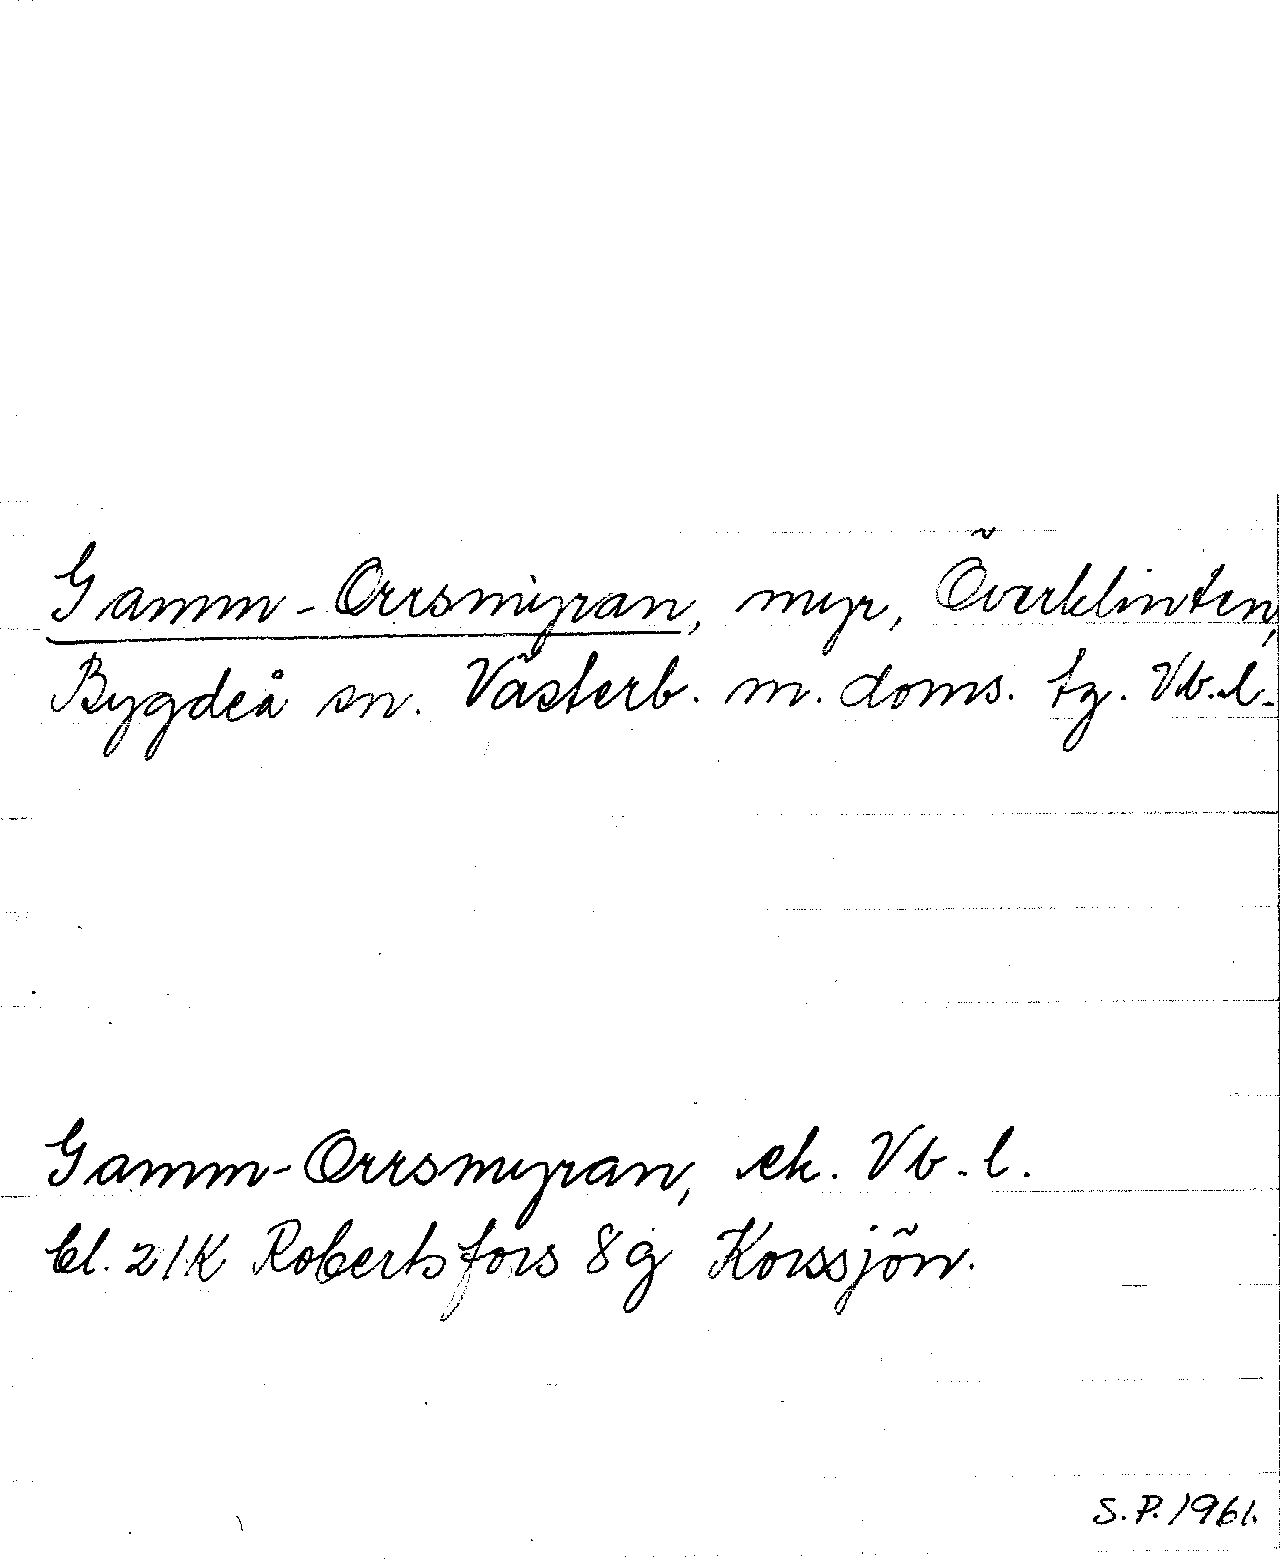 Gamm-Orrsmyran, myr, Överklinten,
Bygdeå sn. Västerb. m. doms. tg. Vb.l.
Gamm-Orrsmyran, ek. Vb.l.
bl. 21K Robertsfors 8g Korssjön.
S.P. 1961.